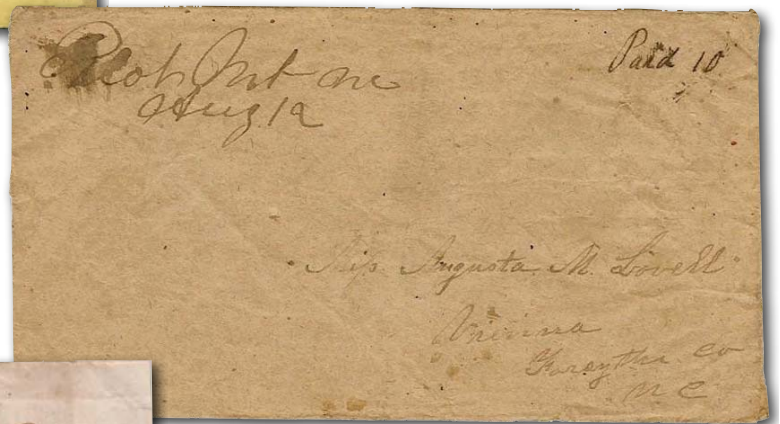 Pilot Mt NC
Aug 12
Paid 10
Miss Augusta M. Lovell
Vienna
Forsythe Co
N C